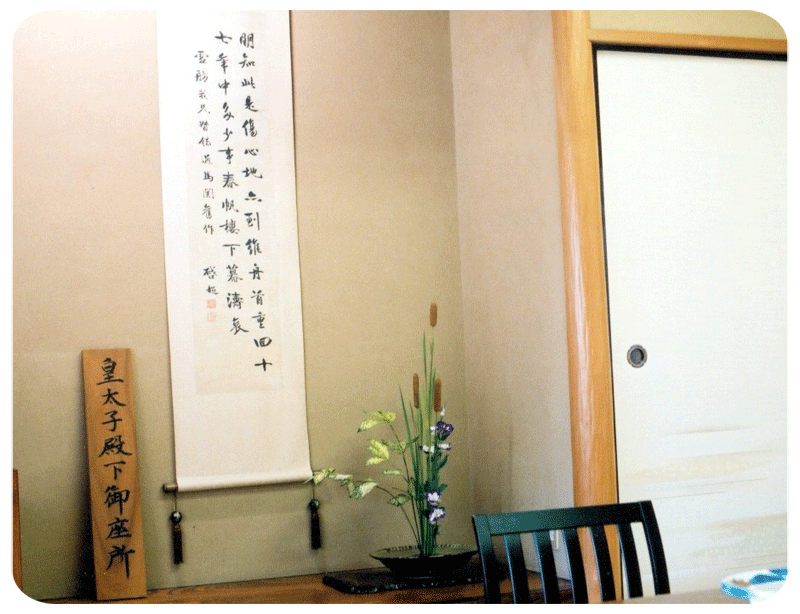 明知此是傷心地亦到維舟首重回十
七年中多少事春帆樓下暮濤哀
過馬関舊作
啓超
皇太子殿下御座所